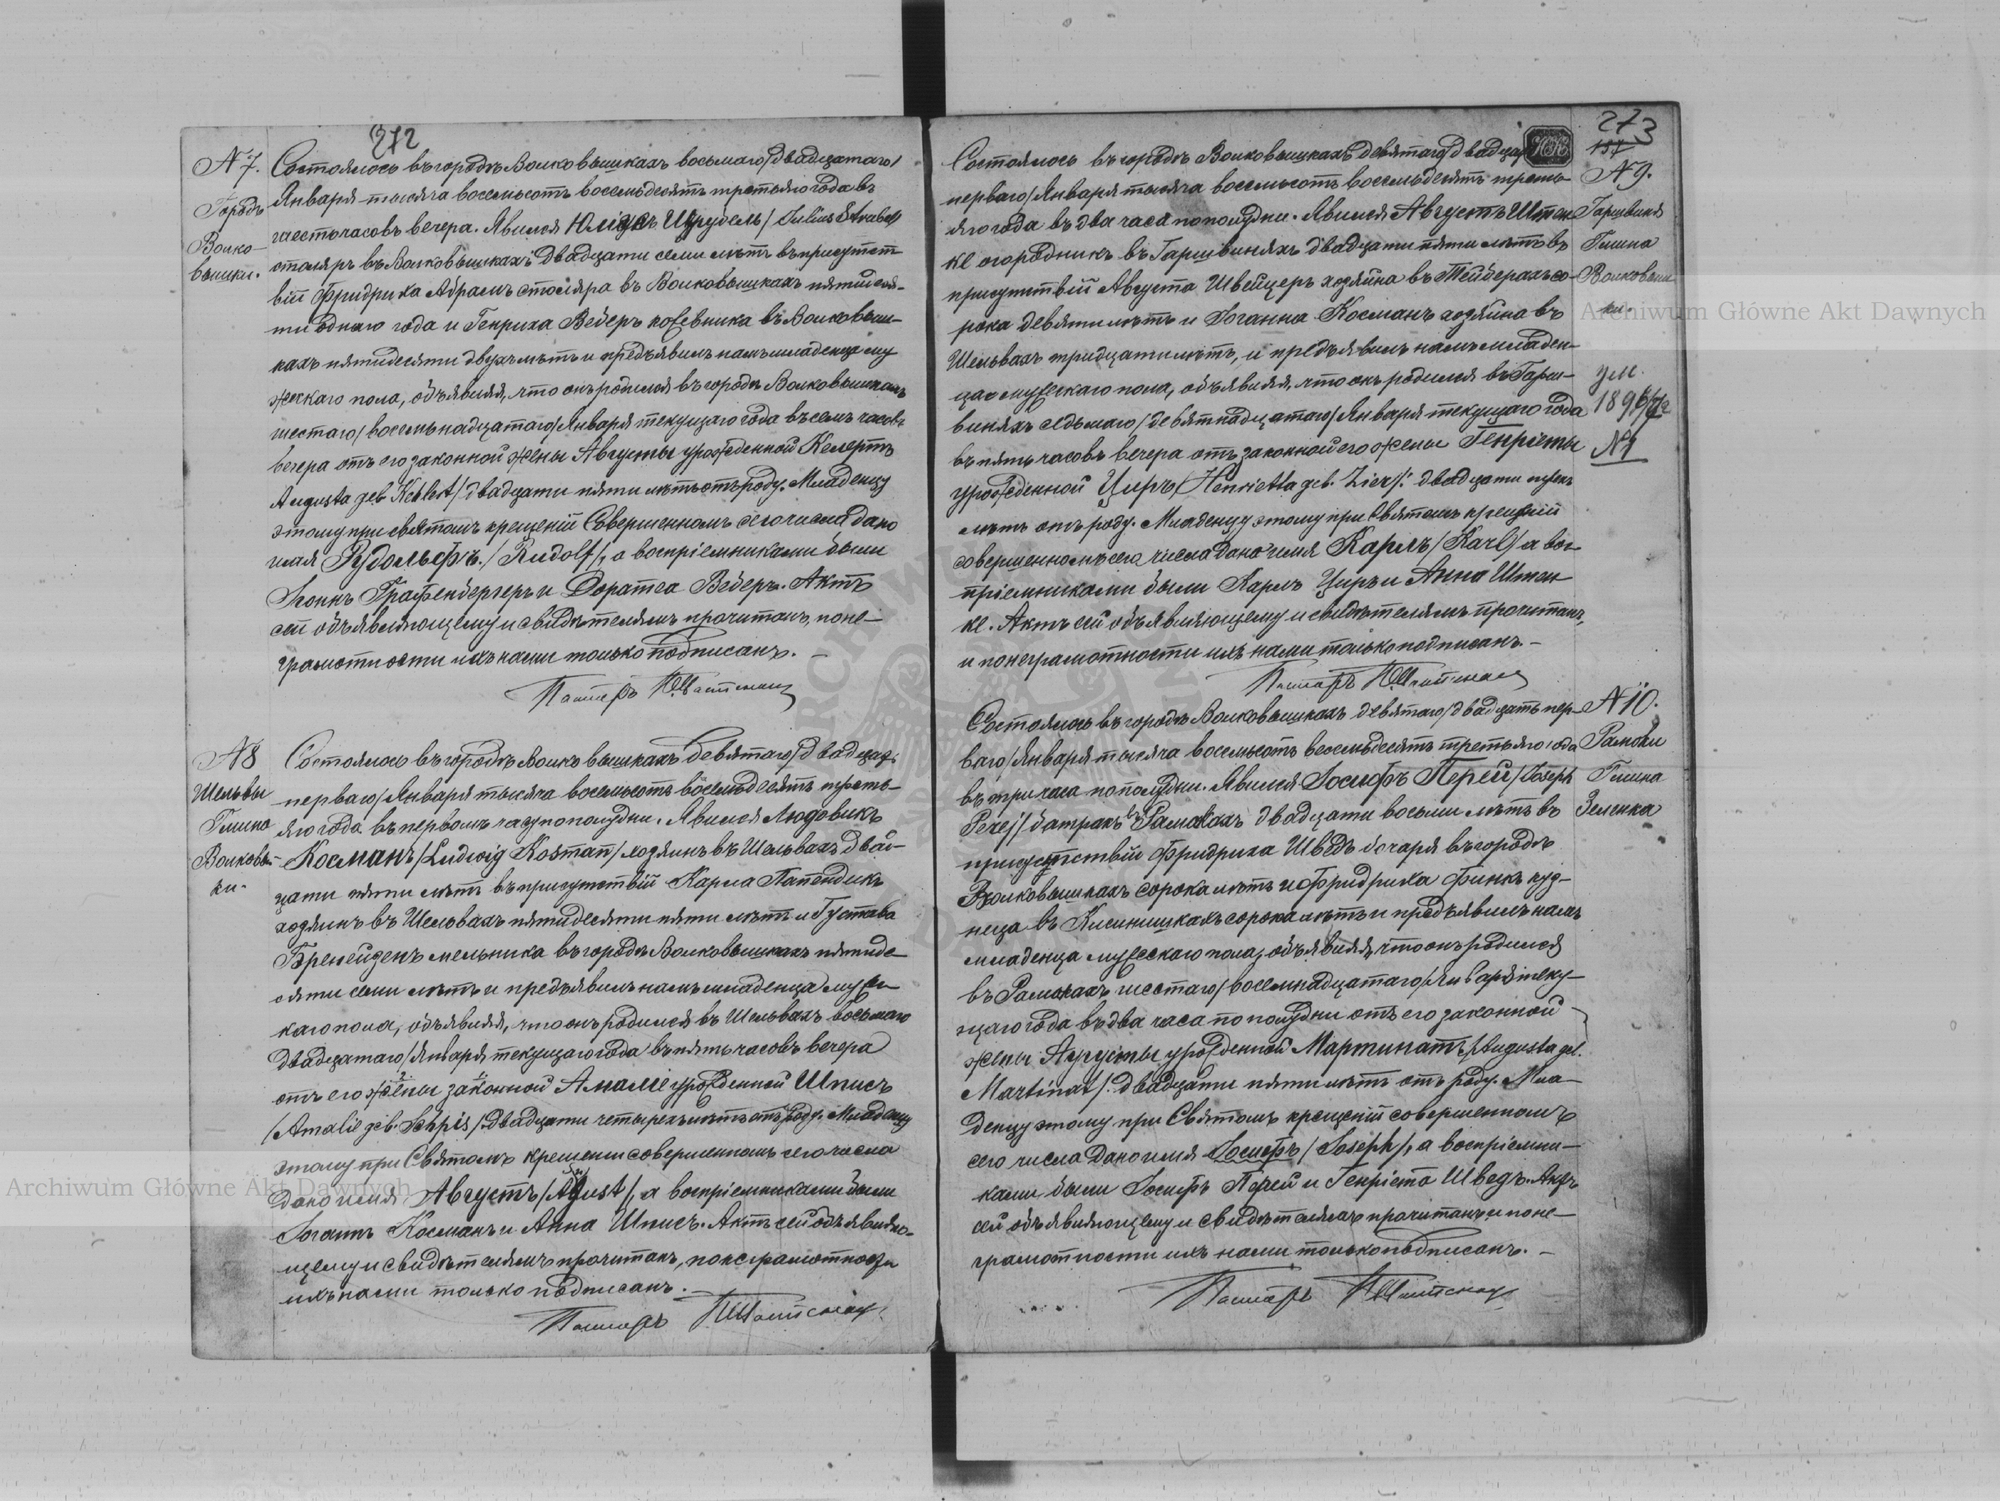 272
№ 7.
Городъ
Волко-
вышки.
Состоялось въ городѣ Волковышкахъ восьмаго/двадцатаго/
Января тысяча восемьсотъ восемьдесятъ третьяго года въ
шесть часовъ вечера. Явился Юліусъ Штрубель /Julius Strubel/
столяръ въ Волковышкахъ двадцати семи лѣтъ въ присутст-
віи Фридриха Абрамъ столяра въ Волковышкахъ пятидеся-
ти однаго года и Генриха Веберъ кожевника въ Волковыш-
кахъ пятидесяти двухъ лѣтъ и предъявилъ намъ младенца му
жескаго пола, объявляя, что онъ родился въ городѣ Волковышкахъ
шестаго/восемьнадцатаго/Января текущаго года въ семь часовъ
вечера отъ его законной жены Августы урожденной Келертъ
Augusta geb. Kehlert/двадцати пяти лѣтъ отъ роду. Младенцу
этому при святомъ крещеніи совершенномъ сего числа дано
имя Рудольфъ /Rudolf/, а воспріемниками были
Іоаннъ Графенбергеръ и Доратеа Веберъ. Актъ
сей объявляющему и свидѣтелямъ прочитанъ, по не-
грамотности ихъ нами только подписанъ. –
Пасторъ
№ 8
Шельвы
Гмина
Волковыш-
ки.
Состоялось въ городѣ Волковышкахъ девятаго/двадцать
перваго/Января тысяча восемьсотъ восемьдесятъ треть-
яго года въ первомъ часу по полудни. Явился Людовикъ
Косманъ /Ludwig Kosman/ хозяинъ въ Шельвахъ двад-
цати пяти лѣтъ въ присутствіи Карла Папендикъ
хозяинъ въ Шельвахъ пятидесяти пяти лѣтъ и Густава
Бренейденъ мельника въ городѣ Волковышкахъ пятиде-
сяти семи лѣтъ и предъявилъ намъ младенца мужес-
каго пола, объявляя, что онъ родился въ Шельвахъ восьмаго
двадцатаго/Января текущаго года въ пять часовъ вечера
отъ его жены законной Амаліе урожденной Шписъ
/Amalie geb. Schpis/ двадцати четырехъ лѣтъ отъ роду. Младенцу
этому при Святомъ крещеніи совершенномъ сего числа
дано имя Августъ /August/, а воспріемниками были
Іоганъ Косманъ и Анна Шписъ. Актъ сей объявляю-
щему и свидѣтелямъ прочитанъ, по неграмотности
ихъ нами только подписанъ. –
Пасторъ
273
137
№ 9.
Гаршвиня
Гмина
Волковыш-
ки.
ум.
№ 1
Состоялось въ городѣ Волковышкахъ девятаго/двадцать
перваго/Января тысяча восемьсотъ восемьдесятъ треть-
яго года въ два часа по полудни. Явился Августъ Штен-
ке огородникъ въ Гаршвиняхъ двадцати пяти лѣтъ въ
присутствіи Августа Швейцеръ хозяина въ Тейберахъ со-
рока девяти лѣтъ и Іоганна Косманъ хозяина въ
Шельвахъ тридцати лѣтъ, и предъявилъ намъ младен-
ца мужескаго пола, объявляя, что онъ родился въ Гарш-
виняхъ седьмаго/девятнадцатаго/Января текущаго года
въ пять часовъ вечера отъ законной его жены Генріеты
урожденной Циръ /Henrietta geb. Zier/: двадцати трехъ
лѣтъ отъ роду. Младенцу этому при Святомъ крещеніи
совершенномъ сего числа дано имя Карлъ /Karl/ а вос-
пріемниками были Карлъ Циръ и Анна Штен
ке. Актъ сей объявляющему и свидѣтелямъ прочитанъ,
и по неграмотности ихъ нами только подписанъ. –
Пасторъ
№ 10.
Рамоки
Гмина
Зеленка
Состоялось въ городѣ Волковышкахъ девятаго/двадцать пер-
ваго/Января тысяча восемьсотъ восемьдесятъ третьяго года
въ три часа по полудни. Явился Іосифъ Перей /Joseph
Perej/ батракъ въ Рамокахъ двадцати восьми лѣтъ въ
присутствіи Фридриха Шведъ бочаря въ городѣ
Волковышкахъ сорока лѣтъ и Фридриха Финкъ куз-
неца въ Кисинишкахъ сорока лѣтъ и предъявилъ намъ
младенца мужескаго пола, объявляя, что онъ родился
въ Рамокахъ шестаго/восемнадцатаго/Января теку-
щаго года въ два часа по полудни отъ его законной
жены Августы урожденной Мартинатъ /Augusta geb.
Martinat/: двадцати пяти лѣтъ отъ роду. Мла-
денцу этому при Святомъ крещеніи совершенномъ
сего числа дано имя Іосифъ /Joseph/, а воспріемни-
ками были Іосифъ Перей и Генріета Шведъ. Актъ
сей объявляющему и свидѣтелямъ прочитанъ и по не-
грамотности ихъ нами только подписанъ. –
Пасторъ
Archiwum Główne Akt Dawnych
Archiwum Główne Akt Dawnych